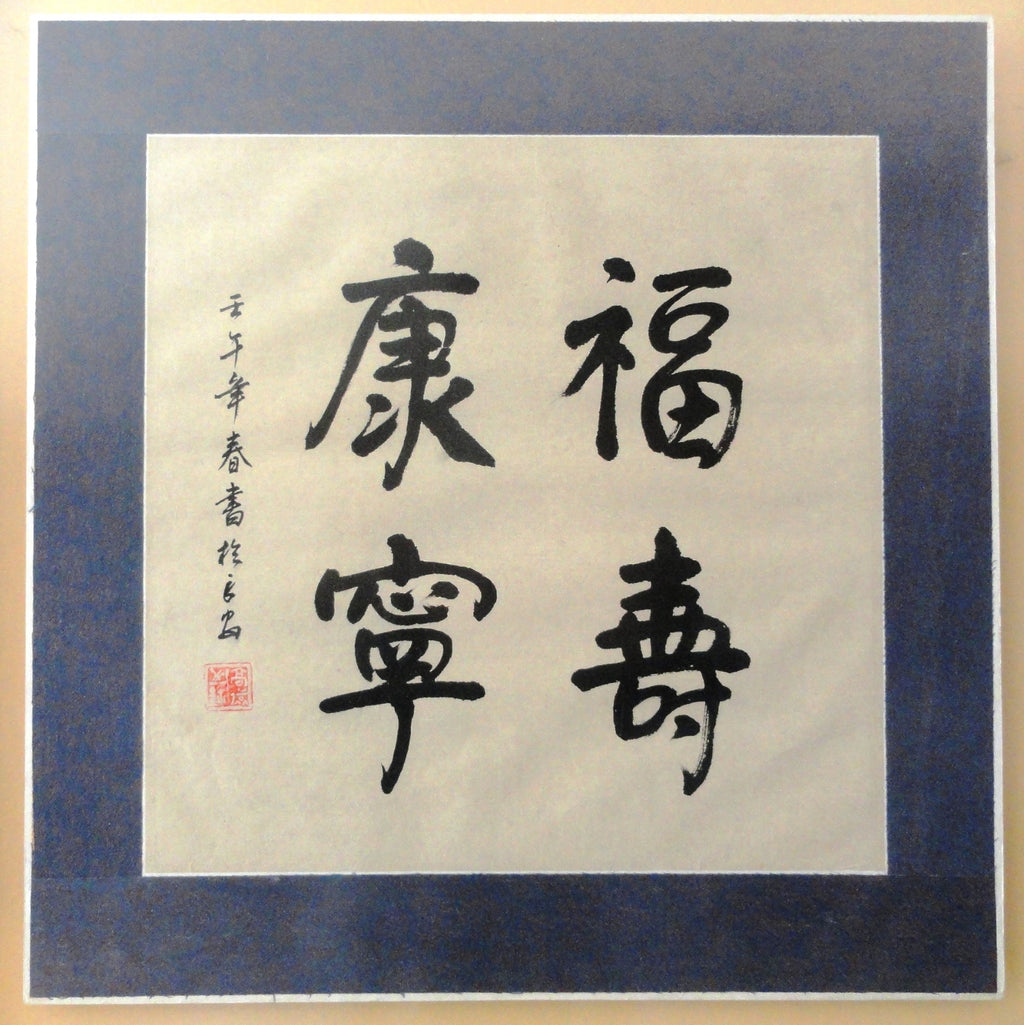 福壽
康寧
壬午年春書於長安